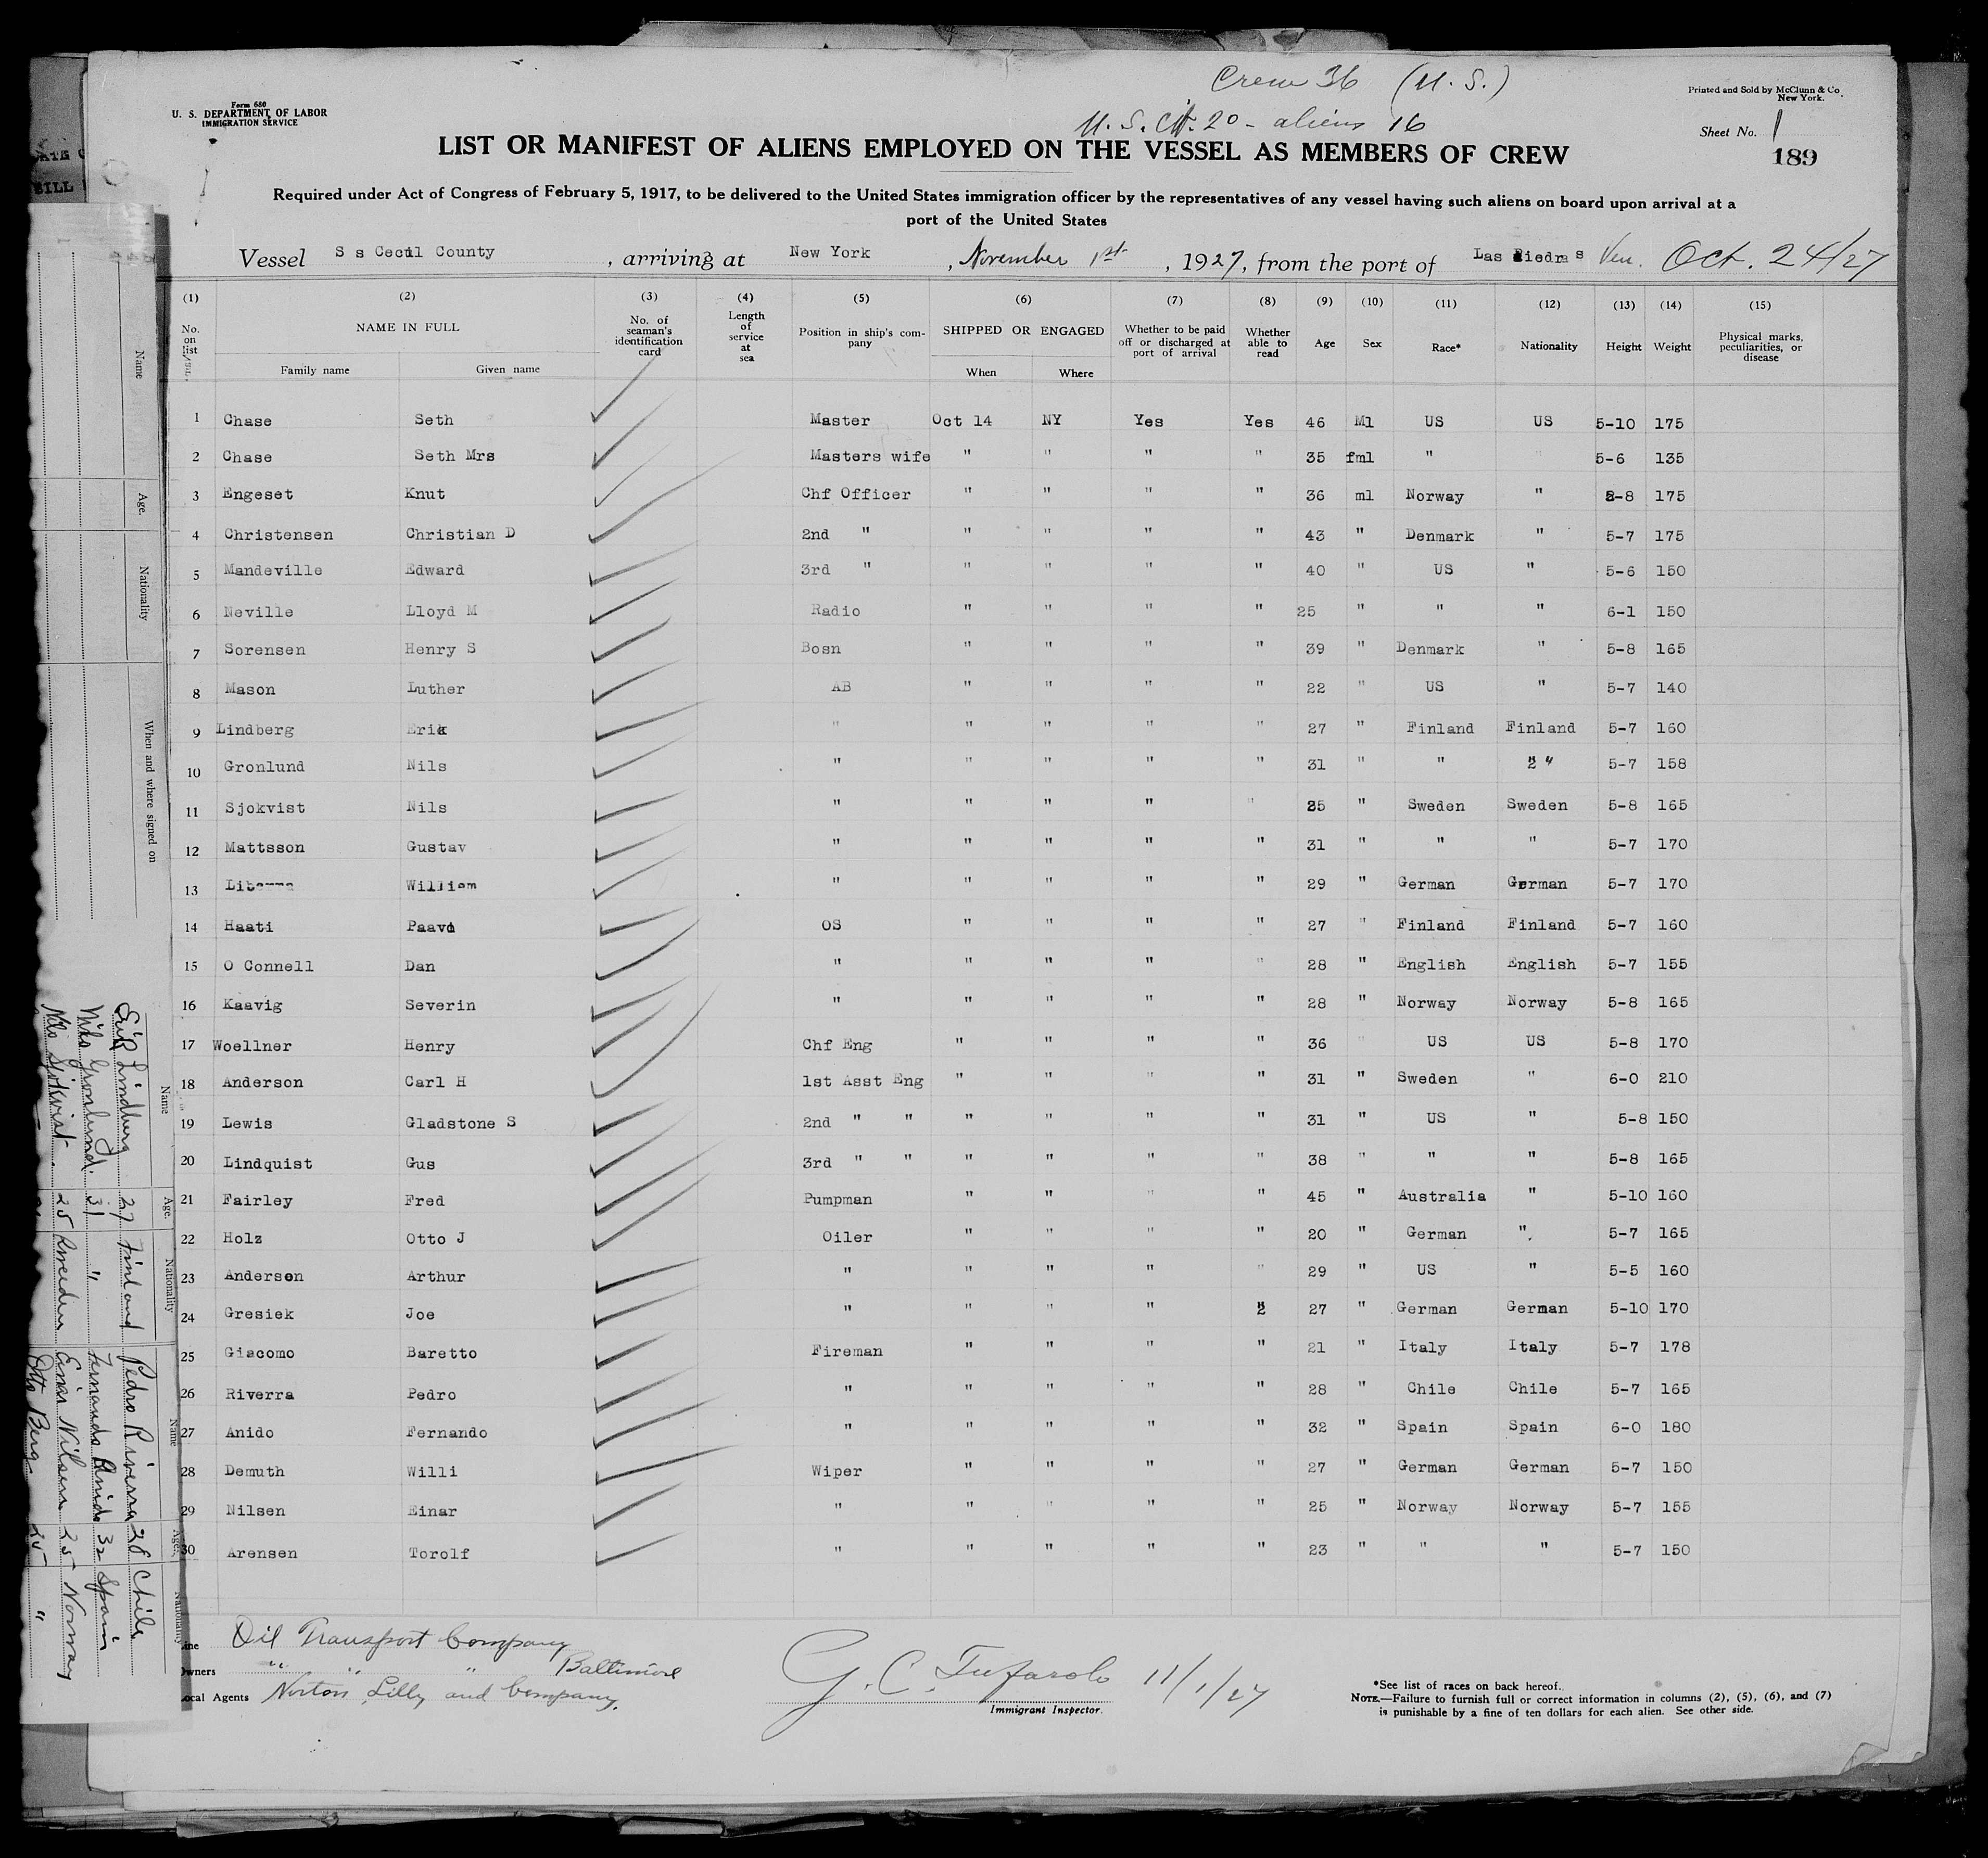 Crew 36 (U.S.)
Form 680
U. S. DEPARTMENT OF LABOR
IMMIGRATION SERVICE
Printed and Sold by McClunn & Co.
New York.
U.S. Cit. 20 - aliens 16
Sheet No. 1
LIST OR MANIFEST OF ALIENS EMPLOYED ON THE VESSEL AS MEMBERS OF CREW
189
Required under Act of Congress of February 5, 1917, to be delivered to the United States immigration officer by the representatives of any vessel having such aliens on board upon arrival at a
port of the United States
Vessel S s Cecil County, arriving at New York, November 1st, 1927, from the port of Las Piedras Ven. Oct. 24/27
(1) (2) (3) (4) (5) (6) (7) (8) (9) (10) (11) (12) (13) (14) (15)
No. on list NAME IN FULL Family name Given name No. of seaman's identification card Length of service at sea Position in ship's company SHIPPED OR ENGAGED When Where Whether to be paid off or discharged at port of arrival Whether able to read Age Sex Race* Nationality Height Weight Physical marks, peculiarities, or disease
1 Chase Seth Master Oct 14 NY Yes Yes 46 Ml US US 5-10 175
2 Chase Seth Mrs Masters wife " " " " 35 fml " 5-6 135
3 Engeset Knut Chf Officer " " " " 36 ml Norway " 8-8 175
4 Christensen Christian D 2nd " " " " " 43 " Denmark " 5-7 175
5 Mandeville Edward 3rd " " " " " 40 " US " 5-6 150
6 Neville Lloyd M Radio " " " " 25 " " " 6-1 150
7 Sorensen Henry S Bosn " " " " 39 " Denmark " 5-8 165
8 Mason Luther AB " " " " 22 " US " 5-7 140
9 Lindberg Erik " " " " " 27 " Finland Finland 5-7 160
10 Gronlund Nils " " " " " 31 " " " " 5-7 158
11 Sjokvist Nils " " " " " 25 " Sweden Sweden 5-8 165
12 Mattsson Gustav " " " " " 31 " " " 5-7 170
13 William " " " " " 29 " German German 5-7 170
14 Haati Paavo OS " " " " 27 " Finland Finland 5-7 160
15 O Connell Dan " " " " " 28 " English English 5-7 155
16 Kaavig Severin " " " " " 28 " Norway Norway 5-8 165
17 Woellner Henry Chf Eng " " " " 36 " US US 5-8 170
18 Anderson Carl H 1st Asst Eng " " " " 31 " Sweden " 6-0 210
19 Lewis Gladstone S 2nd " " " " " " 31 " US " 5-8 150
20 Lindquist Gus 3rd " " " " " " 38 " " " 5-8 165
21 Fairley Fred Pumpman " " " " 45 " Australia " 5-10 160
22 Holz Otto J Oiler " " " " 20 " German " 5-7 165
23 Anderson Arthur " " " " " 29 " US " 5-5 160
24 Gresiek Joe " " " " " 27 " German German 5-10 170
25 Giacomo Baretto Fireman " " " " 21 " Italy Italy 5-7 178
26 Riverra Pedro " " " " " 28 " Chile Chile 5-7 165
27 Anido Fernando " " " " " 32 " Spain Spain 6-0 180
28 Demuth Willi Wiper " " " " 27 " German German 5-7 150
29 Nilsen Einar " " " " " 25 " Norway Norway 5-7 155
30 Arensen Torolf " " " " " 23 " " " 5-7 150
Line Oil Transport Company
Owners " " " Baltimore
Local Agents Norton, Lilly and Company.
G. C. Tufarolo 11/1/27
Immigrant Inspector.
*See list of races on back hereof.
NOTE.—Failure to furnish full or correct information in columns (2), (5), (6), and (7)
is punishable by a fine of ten dollars for each alien. See other side.
Name Age. Nationality When and where signed on
Name Age. Nationality
Erik Lindberg 27 Finland
Nils Gronlund. 31 "
Nils Sjokvist. 25 Sweden
Name Age. Nationality
Pedro Riverra 28 Chile
Fernando Anido 32 Spain
Einar Nilsen 25 Norway
Otto Berg 25 "